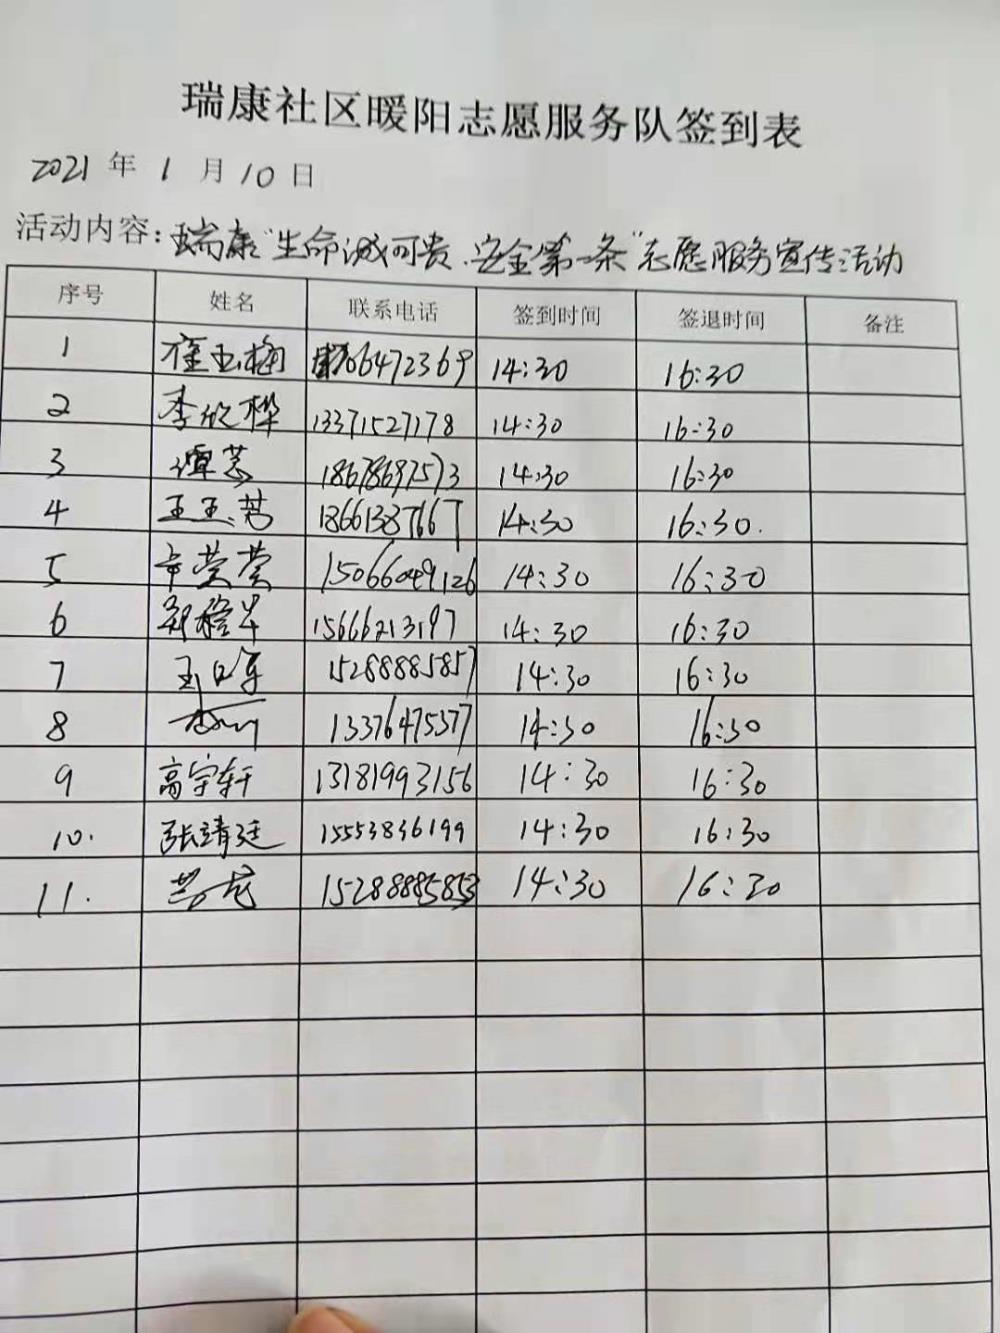 瑞康社区暖阳志愿服务队签到表
2021 年 1 月 10 日
活动内容：瑞康"生命诚可贵、安全第一条"志愿服务宣传活动
序号 姓名 联系电话 签到时间 签退时间 备注
1 崔玉梅 66472369 14:30 16:30
2 李欣桦 13371527178 14:30 16:30
3 谭芸 18678697573 14:30 16:30
4 王玉芳 18661387667 14:30 16:30.
5 辛莹莹 15066049126 14:30 16:30
6 15666213197 14:30 16:30
7 15288885857 14:30 16:30
8 13376475377 14:30 16:30
9 高宇轩 13181993156 14:30 16:30
10. 张靖廷 15553836199 14:30 16:30
11. 15288885853 14:30 16:30